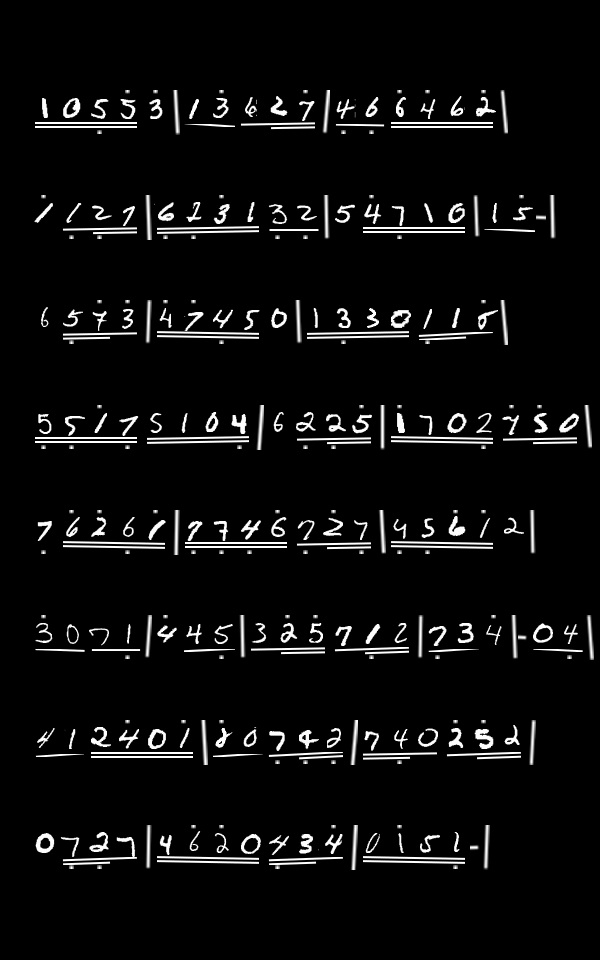 10553|13627|466462|
1127|623132|54710|15-|
6573|47450|1330115|
55175104|6225|1702750|
76261|7746727|45612|
3071|445|325712|734|-04|
412401|20742|740252|
0727|4620434|0151-|